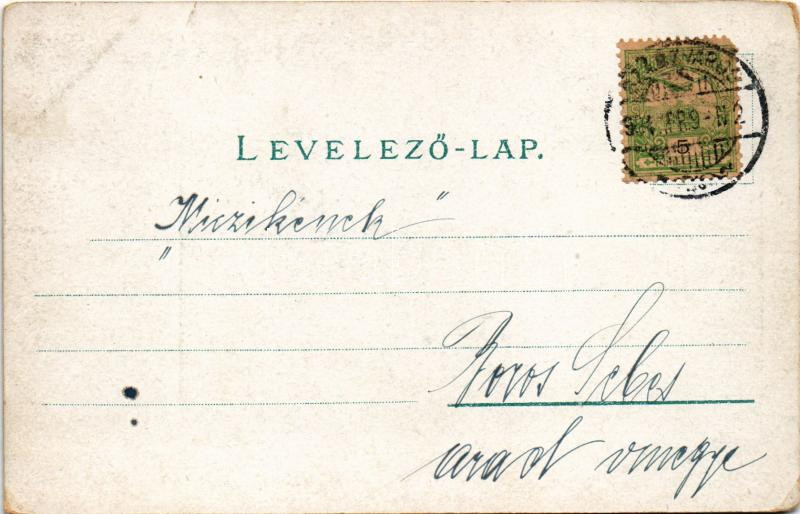 LEVELEZŐ-LAP.
„Miczikének"
Boros Sebes
arad vmegye
5